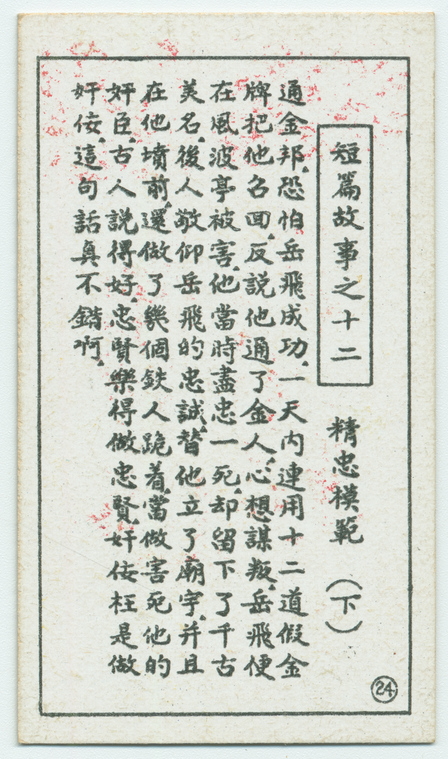 短篇故事之十二
精忠模範（下）
通金邦，恐怕岳飛成功，一天內連用十二道假金
牌把他召回，反說他通了金人，心想謀叛，岳飛便
在風波亭被害，他當時盡忠一死，却留下了千古
美名，後人敬仰岳飛的忠誠，替他立了廟宇，并且
在他墳前，還做了幾個鉄人跪着，當做害死他的
奸臣，古人說得好，忠賢樂得做忠賢，奸佞枉是做
奸佞，這句話真不錯啊，
24